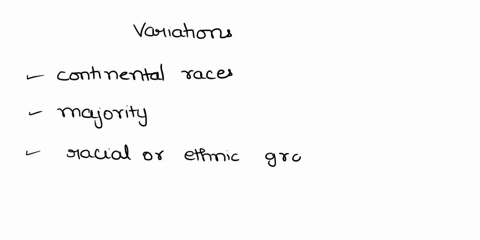 Variations
- continental races
- majority
- racial or ethnic gro